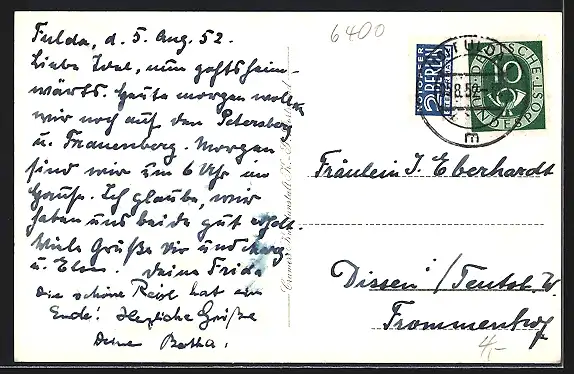 Fulda, d. 5. Aug. 52.
Liebe Idel, nun gehts heim-
wärts. Heute morgen wollen
wir noch auf den Petersberg
u. Frauenberg. Morgen
sind wir um 6 Uhr im
Hause. Ich glaube, wir
haben uns beide gut erholt.
Viele Grüße Dir und
u. Deine Frida
Die schöne Reise hat ein
Ende! Herzliche Grüße
Deine Betha.
6400
NOTOPFER
2 BERLIN
STEUERMARKE
FULDA
8.52
m
DEUTSCHE
BUNDESPOST
10
Fräulein I. Eberhardt
Dissen / Teutob. W.
Frommenhof
4,-